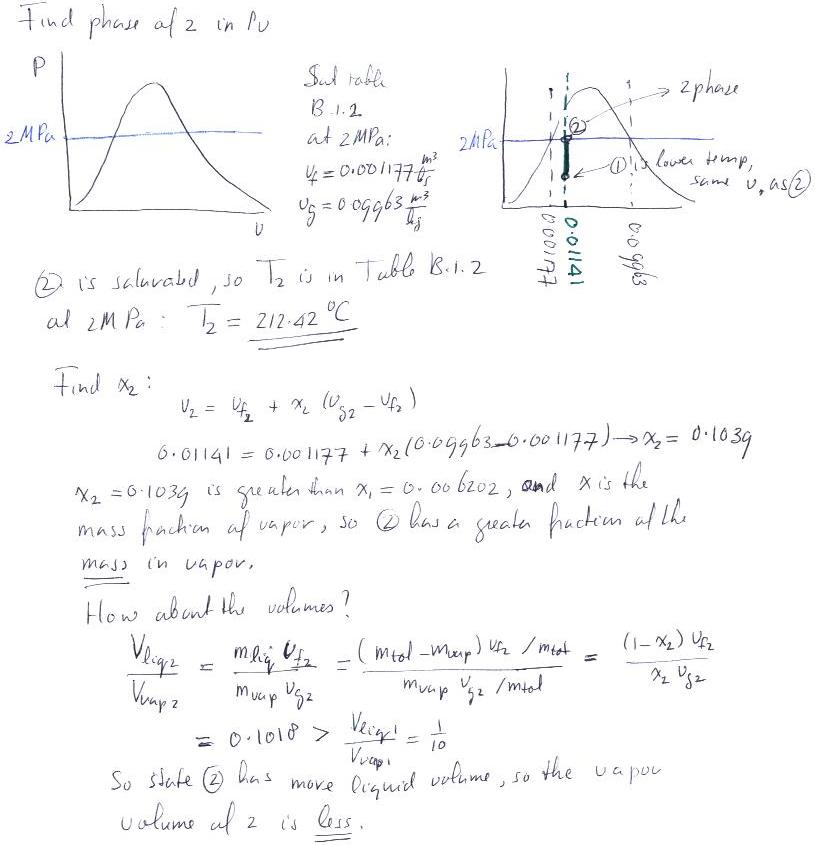 Find phase of 2 in Pv
P
2MPa
v
Sat table
B.1.2
at 2MPa:
vf = 0.001177 m³/kg
vg = 0.09963 m³/kg
2MPa
②
2 phase
① is lower temp,
same v, as ②
0.00177
0.01141
0.09963
② is saturated, so T₂ is in Table B.1.2
at 2MPa: T₂ = 212.42 °C
Find x₂:
v₂ = vf₂ + x₂ (vg₂ – vf₂)
0.01141 = 0.001177 + x₂(0.09963–0.001177) → x₂ = 0.1039
x₂ = 0.1039 is greater than x₁ = 0.006202, and x is the
mass fraction of vapor, so ② has a greater fraction of the
mass in vapor.
How about the volumes?
Vliq2/Vvap2 = mliq vf2/mvap vg2 = (mtot – mvap) vf2 /mtot / mvap vg2 /mtot = (1–x₂) vf2 / x₂ vg2
= 0.1018 > Vliq1/Vvap1 = 1/10
So state ② has more liquid volume, so the vapor
volume of 2 is less.